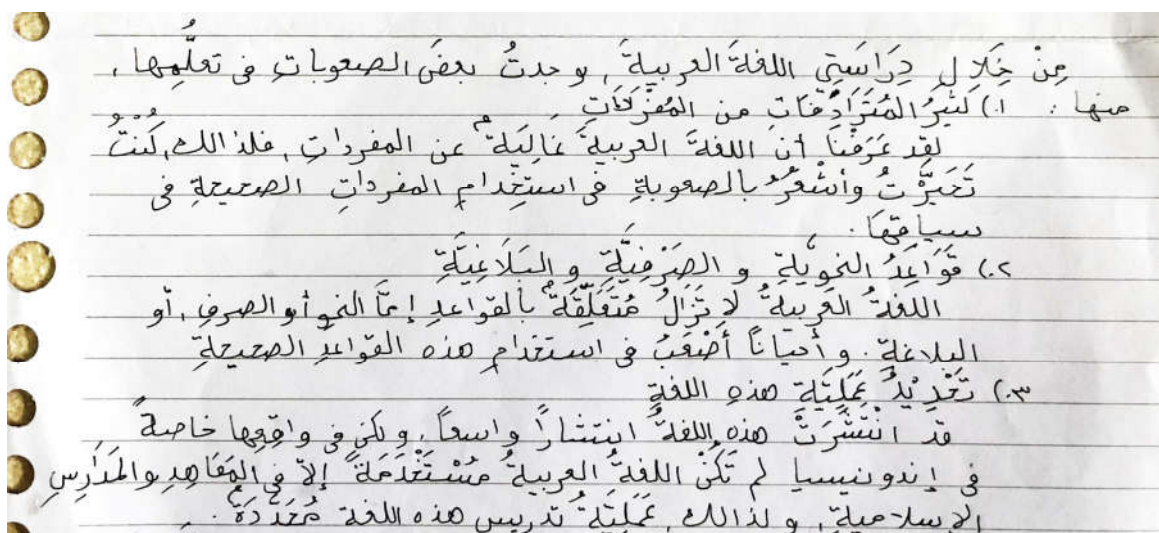 مِنْ خِلَالِ دِرَاسَتِي اللغةَ العربيةَ, وجدتُ بعضَ الصعوباتِ في تعلُّمِها,
منها : ١.) كثيرُ المُتَرَادِفَاتِ من المُفْرَدَاتِ
لقد عَرَفْنَا أن اللغةَ العربيةَ غَالِيَةٌ عن المفرداتِ, فلذالك, كُنْتُ
تَحَيَّرْتُ وأشْعُرُ بالصعوبةِ في استِخْدامِ المفرداتِ الصحيحةِ في
سياقِها.
٢.) قَوَاعِدُ النحويةِ و الصَرْفِيَّةِ و البَلَاغِيَّةِ
اللغةُ العَربيةُ لا تَزَالُ مُتَعَلِّقَةً بالقواعدِ إمَّا النحو أو الصرفِ, أو
البلاغةِ. و أحياناً أَصْعَبُ في استخدامِ هذه القواعدِ الصحيحةِ
٣.) تَحْدِيْدُ عَمَلِيَةِ هذهِ اللغةِ
قد انْتَشَرَتْ هذه اللغةُ انتشاراً واسعاً, ولكن في واقِعِها خاصةً
في إندونيسيا لم تَكُنْ اللغةُ العربيةُ مُسْتَخْدَمَةً إلاّ في المَعَاهِدِ والمَدَارِسِ
الإسلاميةِ, ولذالك, عَمَلِيَةُ تدريسِ هذه اللغةِ مُحَدَّدَةٌ.